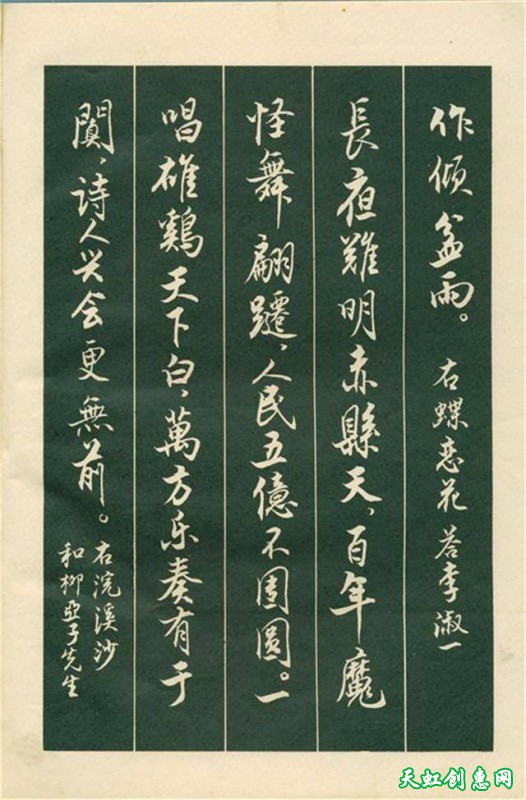 作傾盆雨。右蝶恋花 答李淑一
長夜難明赤縣天，百年魔
怪舞翩躚，人民五億不團圓。一
唱雄鷄天下白，萬方乐奏有于
闐，诗人兴会更無前。右浣溪沙
和柳亞子先生
天虹创惠网